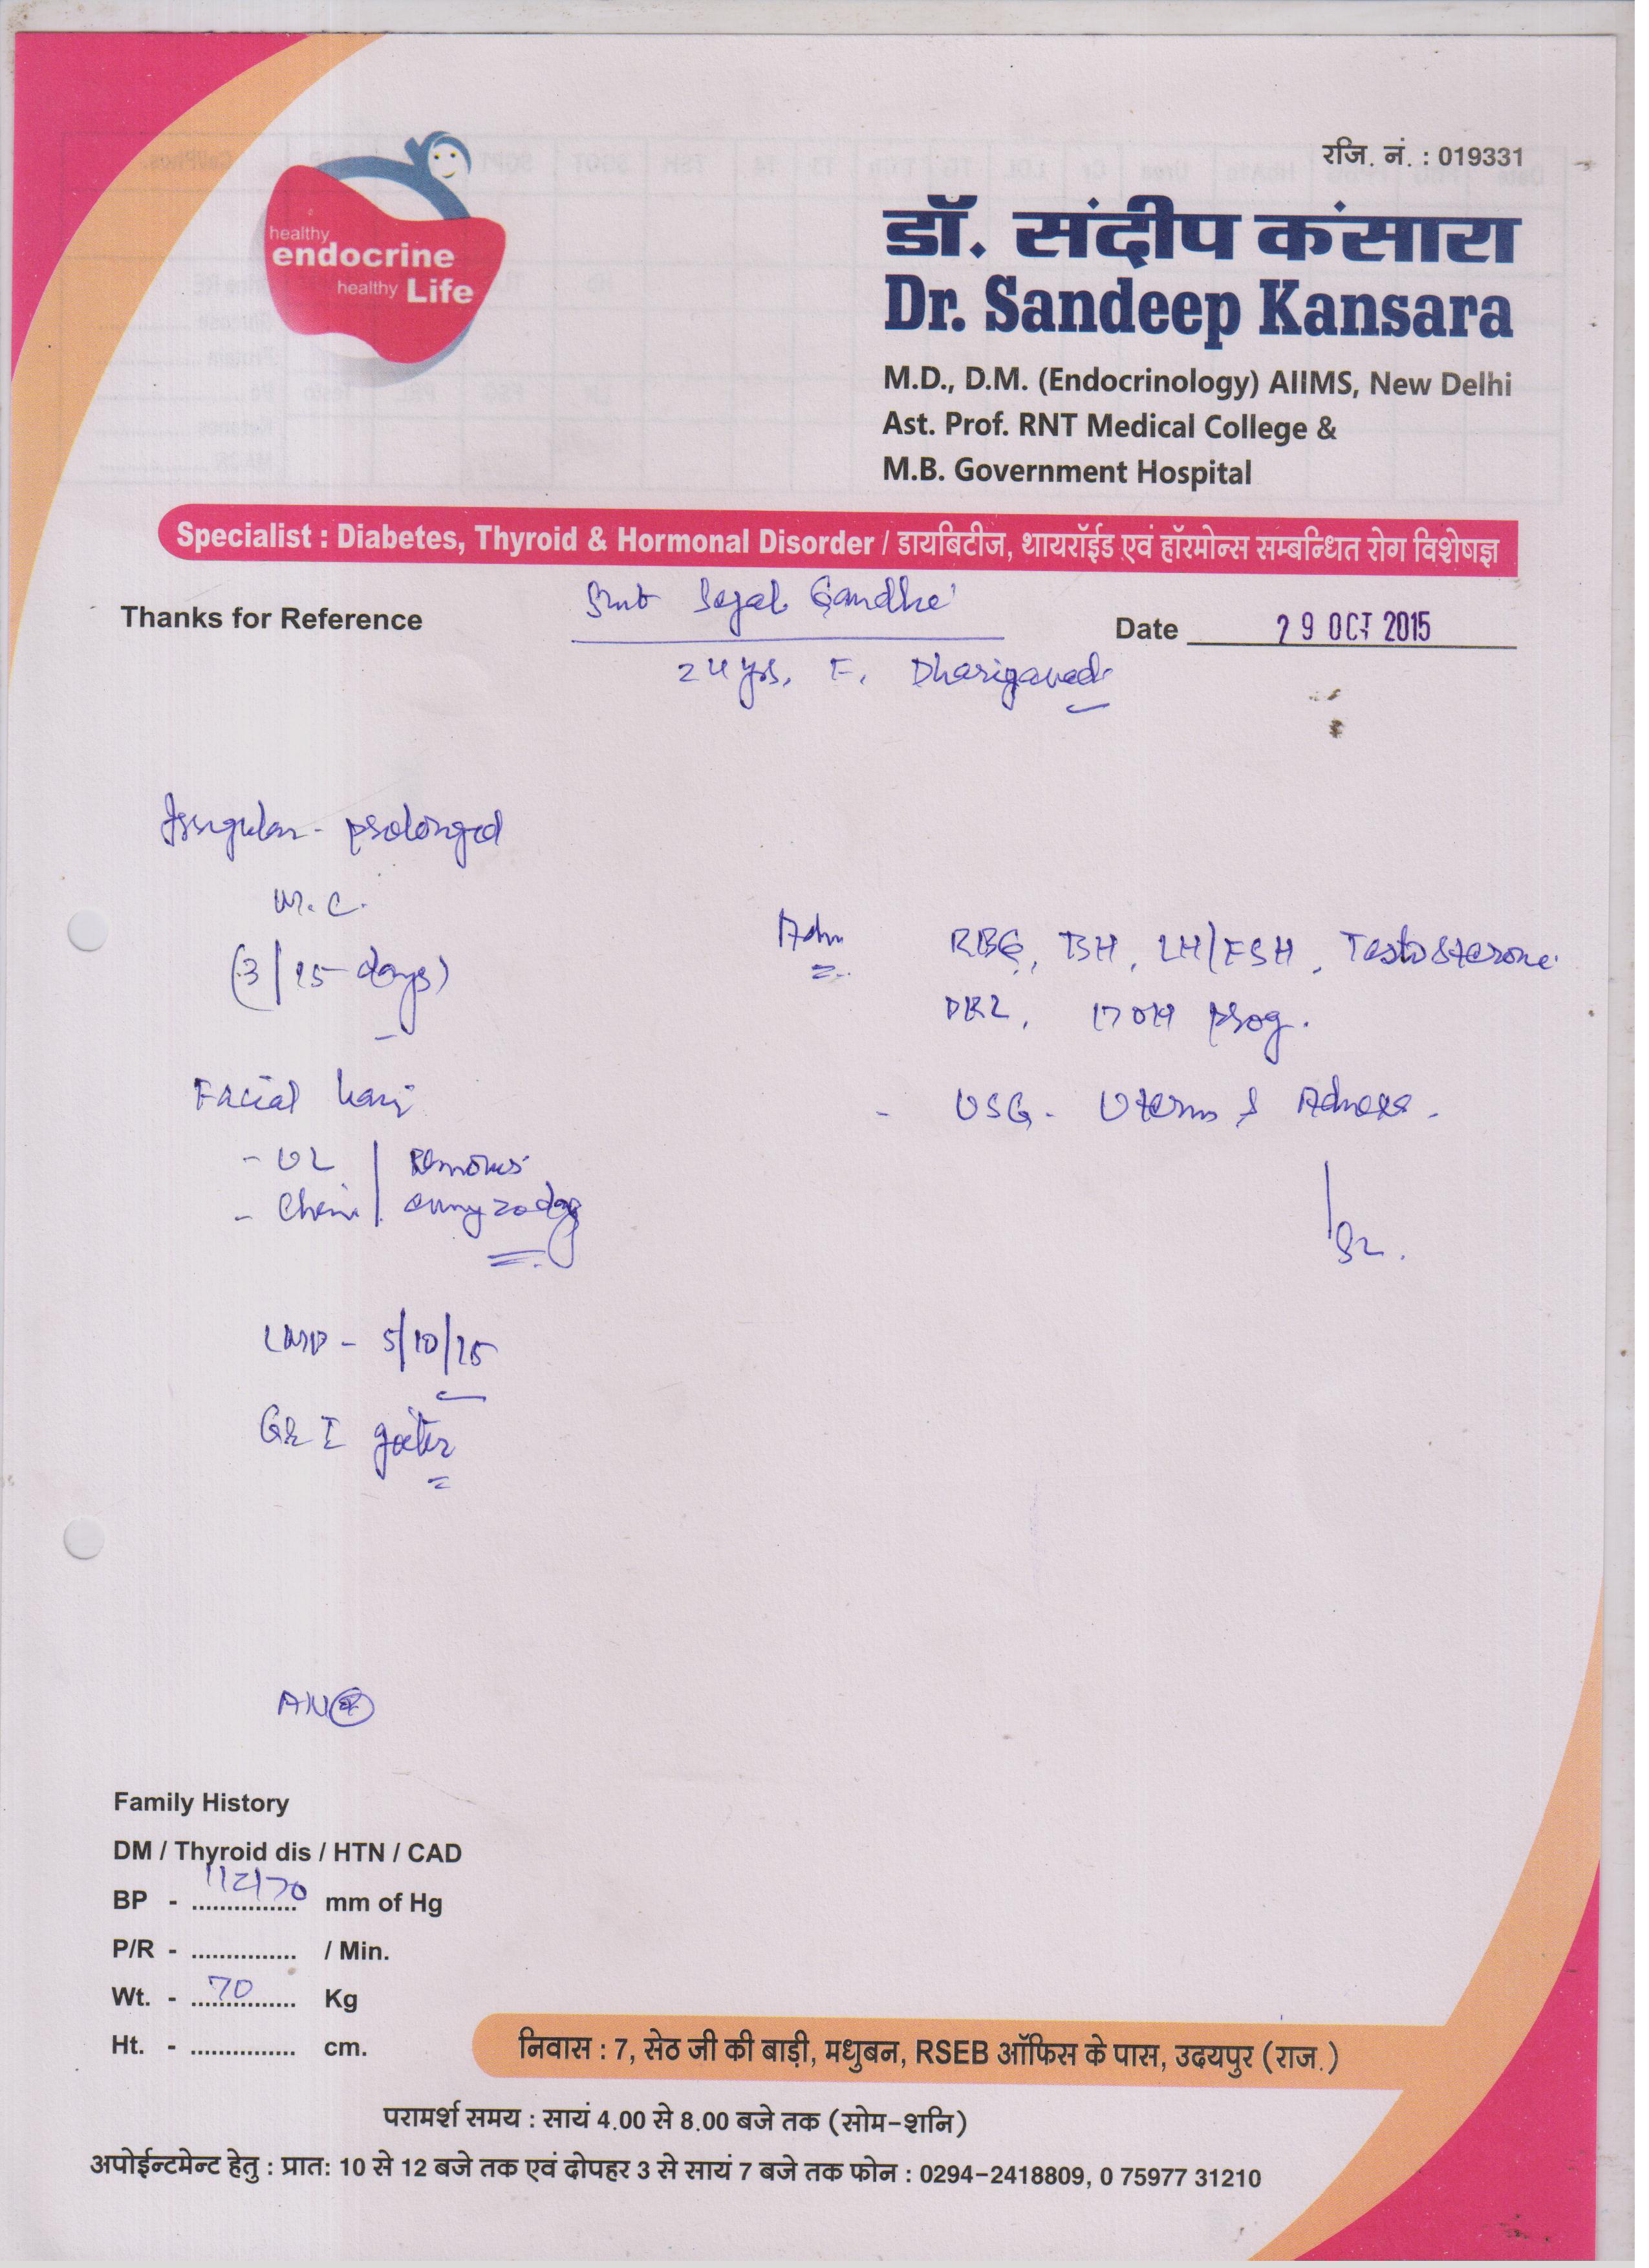 रजि. नं. : 019331
healthy
endocrine
healthy Life
डॉ. संदीप कंसारा
Dr. Sandeep Kansara
M.D., D.M. (Endocrinology) AIIMS, New Delhi
Ast. Prof. RNT Medical College &
M.B. Government Hospital
Specialist : Diabetes, Thyroid & Hormonal Disorder / डायबिटीज, थायरॉईड एवं हॉरमोन्स सम्बन्धित रोग विशेषज्ञ
Thanks for Reference Smt Sejal Gandhi Date 29 OCT 2015
24 yrs, F,
Irregular - prolonged
M.C.
(3/15 days)
Adv RBG, TSH, LH/FSH, Testosterone
PRL, 17 OH prog.
Facial hair
- USG - Uterus & Adnexa.
- UL Removes
- Chin every 20 day
LMP - 5/10/15
Gr I goiter
AN
Family History
DM / Thyroid dis / HTN / CAD
BP - 112/70 mm of Hg
P/R - ............... / Min.
Wt. - 70 Kg
Ht. - ............... cm.
निवास : 7, सेठ जी की बाड़ी, मधुबन, RSEB ऑफिस के पास, उदयपुर (राज.)
परामर्श समय : सायं 4.00 से 8.00 बजे तक (सोम-शनि)
अपोईन्टमेन्ट हेतु : प्रात: 10 से 12 बजे तक एवं दोपहर 3 से सायं 7 बजे तक फोन : 0294-2418809, 0 75977 31210